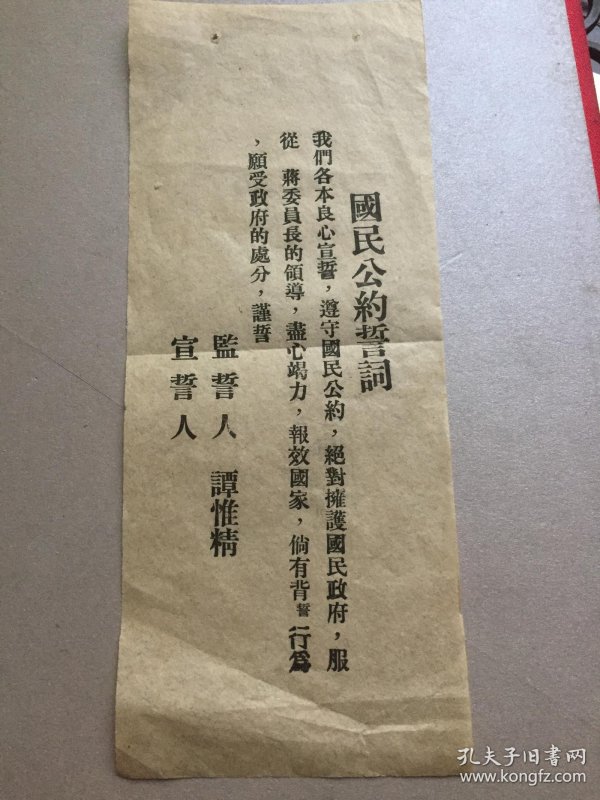 國民公約誓詞
我們各本良心宣誓，遵守國民公約，絕對擁護國民政府，服
從　蔣委員長的領導，盡心竭力，報效國家，倘有背誓行爲
，願受政府的處分，謹誓
監誓人　譚惟精
宣誓人
孔夫子旧书网
www.kongfz.com